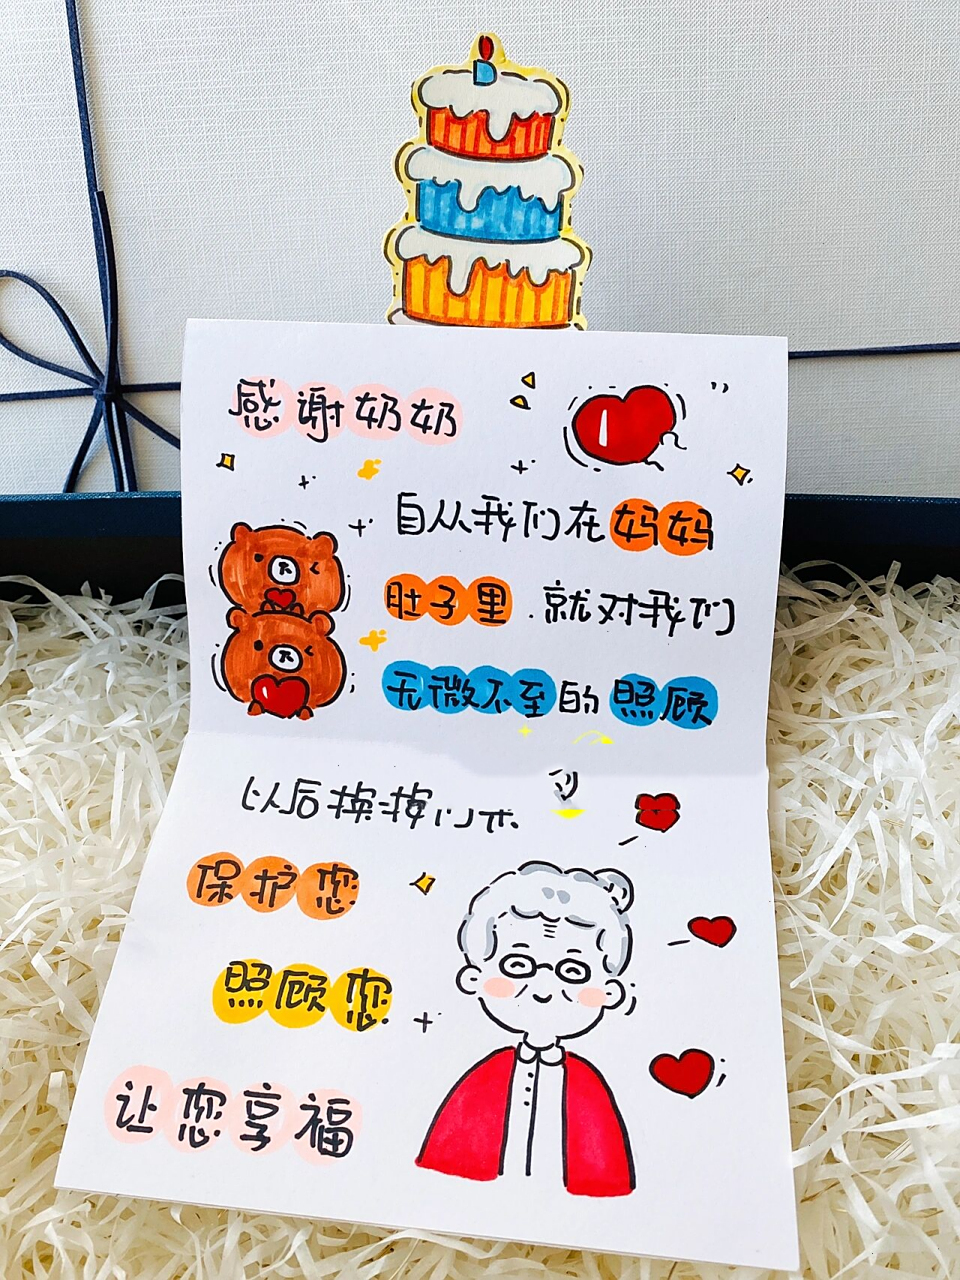 感谢奶奶
自从我们在妈妈
肚子里.就对我们
无微不至的照顾
以后换
保护您
照顾您
让您享福